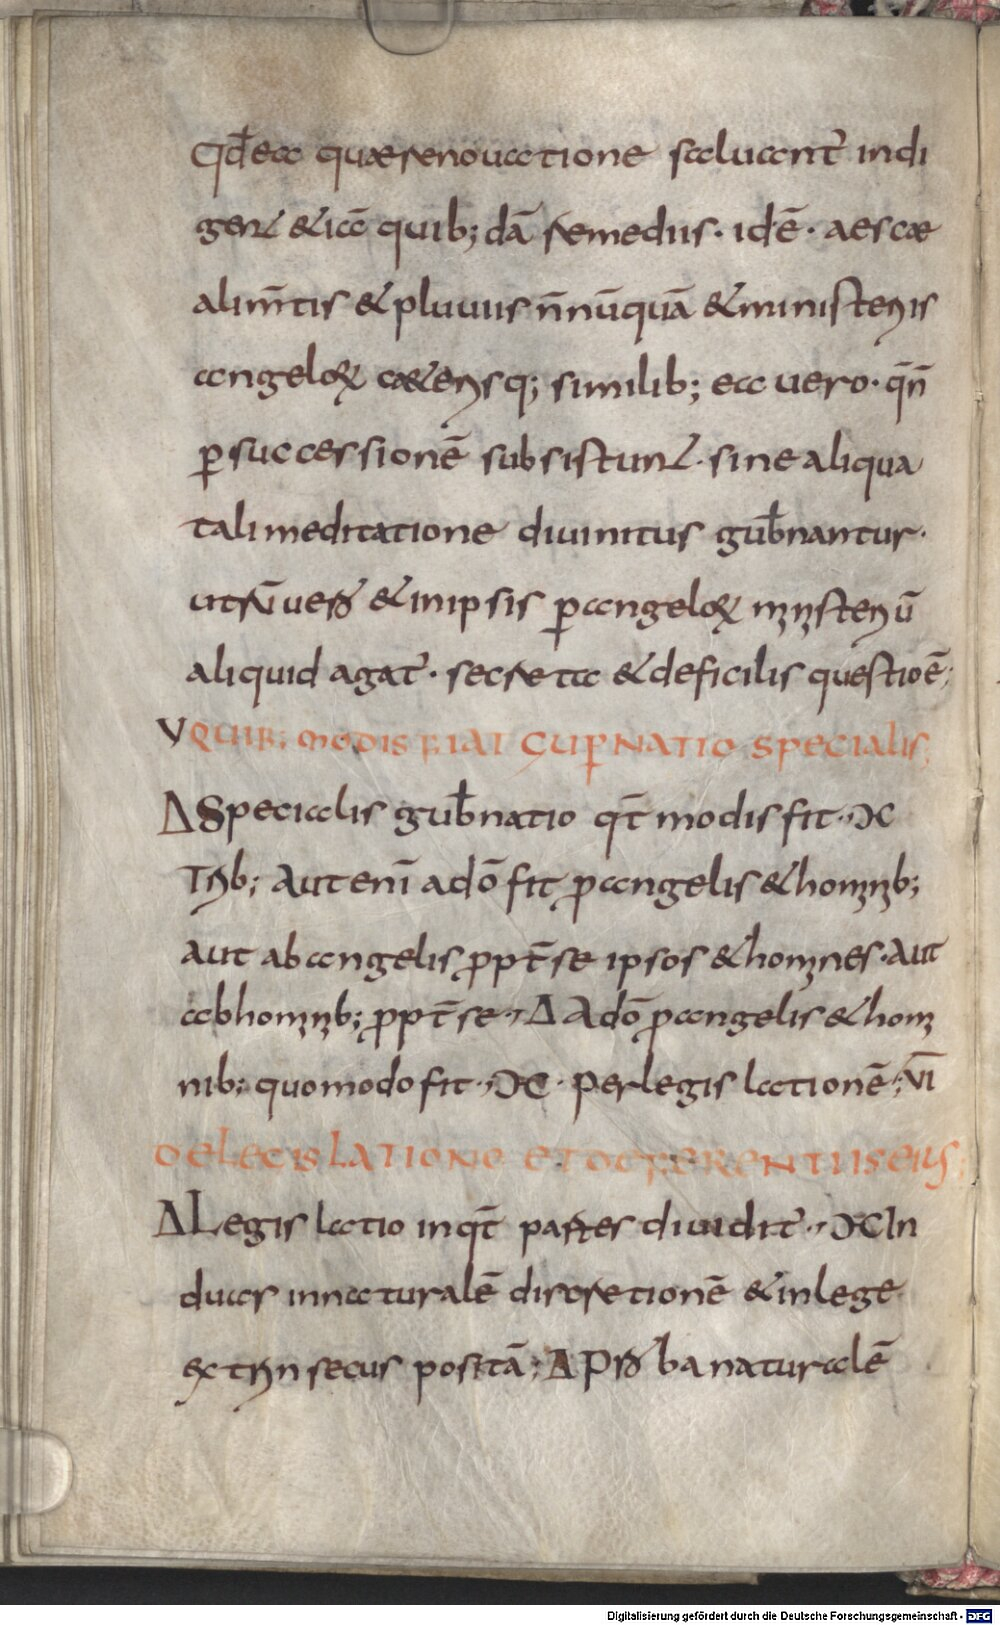 Qđ ea quae renouatione saluant̄ indi
gent & ita quib; dā remediis · idē · aescae
alim̄tis & pluuiis n̄nūquā & ministeriis
angelorꝝ caeterisq; similib; ea uero · qn̄
ꝑ successionē subsistunt · sine aliqua
tali meditatione diuinitus gub̄nantur ·
utrū uero & in ipsis ꝑ angelorꝝ mysteriū
aliquid agat̄ · secreta & deficilis questio ē;
V QUIB; modis FIAT GUꝑNATIO specialis;
Δ Specialis gub̄natio qt̄ modis fit · ϽC
Trib; Aut eni̅ a dō fit ꝑ angelis & hominib;
aut ab angelis ꝓpt̄ se ipsos & homines · Aut
ab hominib; ꝓpt̄ se · Δ A dō ꝑ angelis & homi
nib; quomodo fit · ϽC · Per legis lationē; VI
DE LEGIS LATIONE ET DEFERENTIIS EIUS;
Δ Legis latio in qt̄ partes diuidit̄ · ϽC In
duas in naturalē discretionē & in lege
extrinsecus positā; Δ Proba naturalē
Digitalisierung gefördert durch die Deutsche Forschungsgemeinschaft - DFG